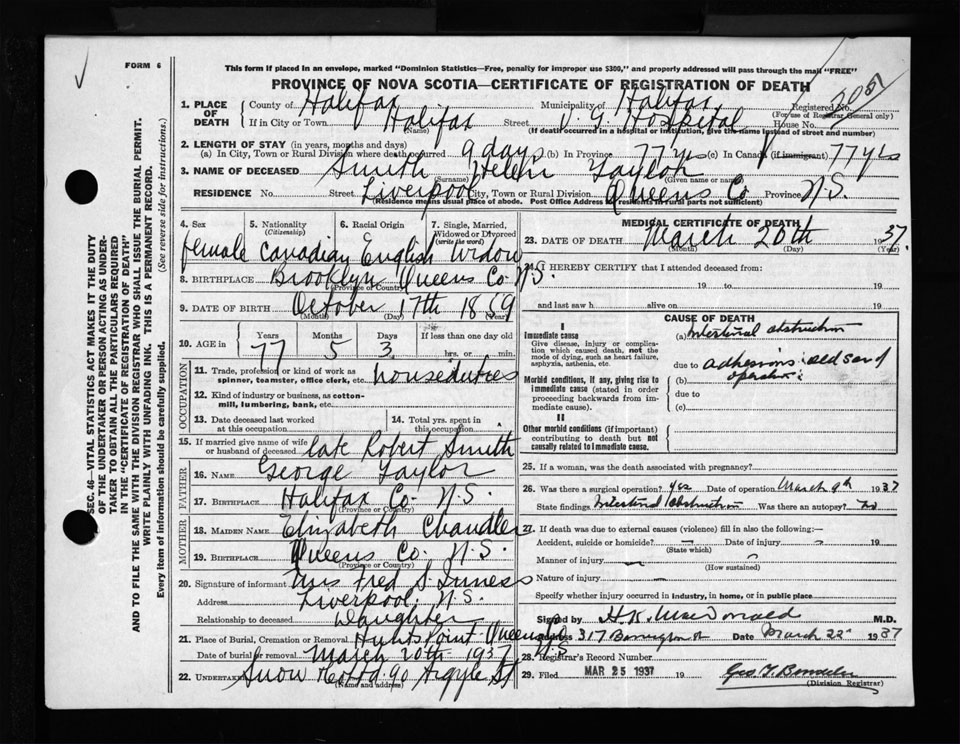 FORM 6
This form if placed in an envelope, marked "Dominion Statistics—Free, penalty for improper use $300," and properly addressed will pass through the mail "FREE"
PROVINCE OF NOVA SCOTIA—CERTIFICATE OF REGISTRATION OF DEATH
SEC. 46—VITAL STATISTICS ACT MAKES IT THE DUTY
OF THE UNDERTAKER OR PERSON ACTING AS UNDER-
TAKER TO OBTAIN ALL THE PARTICULARS REQUIRED
IN THE "CERTIFICATE OF REGISTRATION OF DEATH"
AND TO FILE THE SAME WITH THE DIVISION REGISTRAR WHO SHALL ISSUE THE BURIAL PERMIT.
WRITE PLAINLY WITH UNFADING INK. THIS IS A PERMANENT RECORD.
Every item of information should be carefully supplied. (See reverse side for instructions.)
1. PLACE OF DEATH
County of Halifax Municipality of Halifax Registered No.
(For use of Registrar General only)
If in City or Town Halifax Street V. G. Hospital House No.
(Name) (If death occurred in a hospital or institution, give the name instead of street and number)
2. LENGTH OF STAY (in years, months and days)
(a) In City, Town or Rural Division where death occurred 9 days (b) In Province 77 yrs (c) In Canada (if immigrant) 77 yrs
3. NAME OF DECEASED Smith Helen Taylor
(Surname) (Given name or names)
RESIDENCE No. Street Liverpool City, Town or Rural Division Queens Co Province N.S.
(Residence means usual place of abode. Post Office Address in rural parts not sufficient)
4. Sex 5. Nationality (Citizenship) 6. Racial Origin 7. Single, Married, Widowed or Divorced (write the word)
female Canadian English Widow
8. BIRTHPLACE Brooklyn Queens Co N.S.
(Province or Country)
9. DATE OF BIRTH October 17th 1859
(Month) (Day) (Year)
10. AGE in Years Months Days If less than one day
77 5 3 hrs. or min.
OCCUPATION
11. Trade, profession or kind of work as spinner, teamster, office clerk, etc. houseduties
12. Kind of industry or business, as cotton-mill, lumbering, bank, etc.
13. Date deceased last worked at this occupation 14. Total yrs. spent in this occupation
15. If married give name of wife or husband of deceased late Robert Smith
FATHER
16. NAME George Taylor
17. BIRTHPLACE Halifax Co. N.S.
(Province or Country)
MOTHER
18. MAIDEN NAME Elizabeth Chandler
19. BIRTHPLACE Queens Co. N.S.
(Province or Country)
20. Signature of informant Mrs Fred S. Inness
Address Liverpool, N.S.
Relationship to deceased Daughter
21. Place of Burial, Cremation or Removal Hunts Point Queens Co N.S
Date of burial or removal March 20th 1937
22. UNDERTAKER Snow & Co Ltd 90 Argyle St
(Name and address)
MEDICAL CERTIFICATE OF DEATH
23. DATE OF DEATH March 20th 1937
(Month) (Day) (Year)
24. I HEREBY CERTIFY that I attended deceased from:
19 to 19
and last saw h alive on 19
CAUSE OF DEATH
I
Immediate cause
Give disease, injury or complication which caused death, not the mode of dying, such as heart failure, asphyxia, asthenia, etc.
(a) Intestinal obstruction
due to adhesions: old scar of operation
Morbid conditions, if any, giving rise to immediate cause (stated in order proceeding backwards from immediate cause).
(b)
due to
(c)
II
Other morbid conditions (if important) contributing to death but not causally related to immediate cause.
25. If a woman, was the death associated with pregnancy?
26. Was there a surgical operation? yes Date of operation March 9th 1937
State findings Intestinal Obstruction Was there an autopsy? no
27. If death was due to external causes (violence) fill in also the following:—
Accident, suicide or homicide? — Date of injury — 19
(State which)
Manner of injury — —
(How sustained)
Nature of injury —
Specify whether injury occurred in industry, in home, or in public place
Signed by H.K. MacDonald M.D.
Address 317 Barrington St Date March 22 1937
28. Registrar's Record Number
29. Filed MAR 25 1937 19
(Division Registrar)